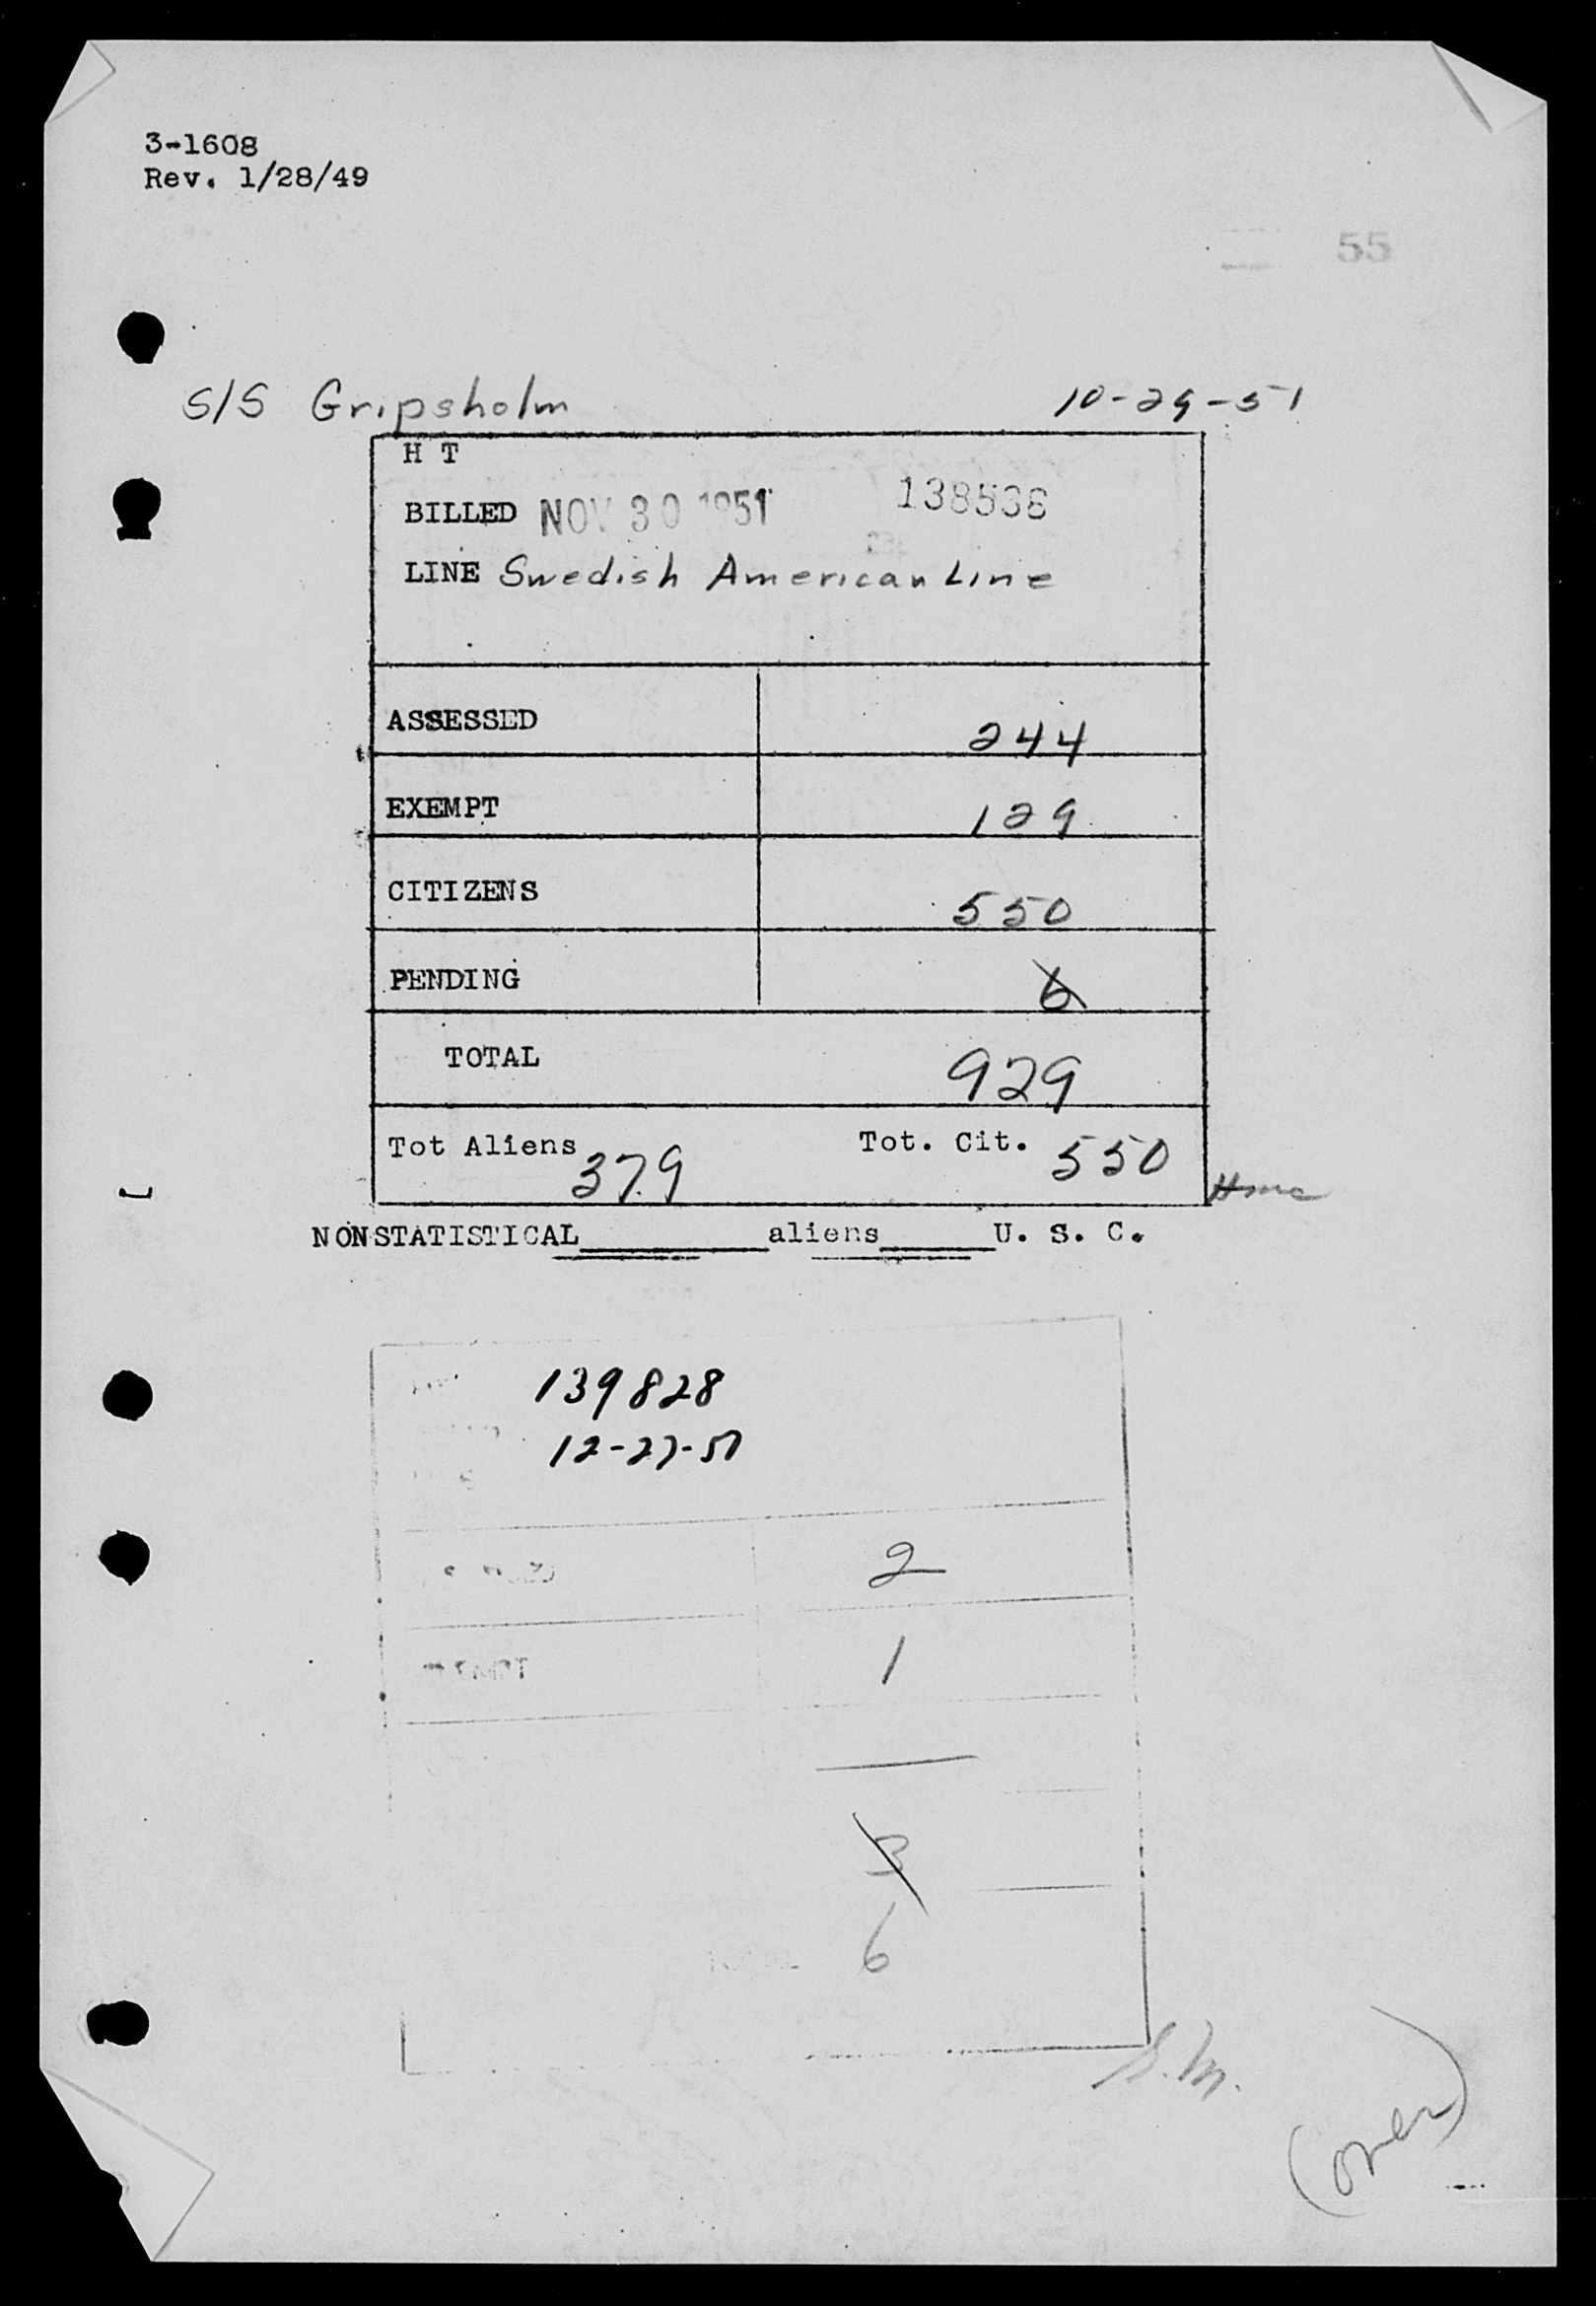 3-1608
Rev. 1/28/49
55
S/S Gripsholm 10-29-51
H T
BILLED NOV 30 1951
LINE Swedish American Line
ASSESSED 244
EXEMPT 129
CITIZENS 550
PENDING 6
TOTAL 929
Tot Aliens 379 Tot. Cit. 550
NONSTATISTICAL aliens U. S. C.
139828
12-27-51
2
1
3
6
(over)